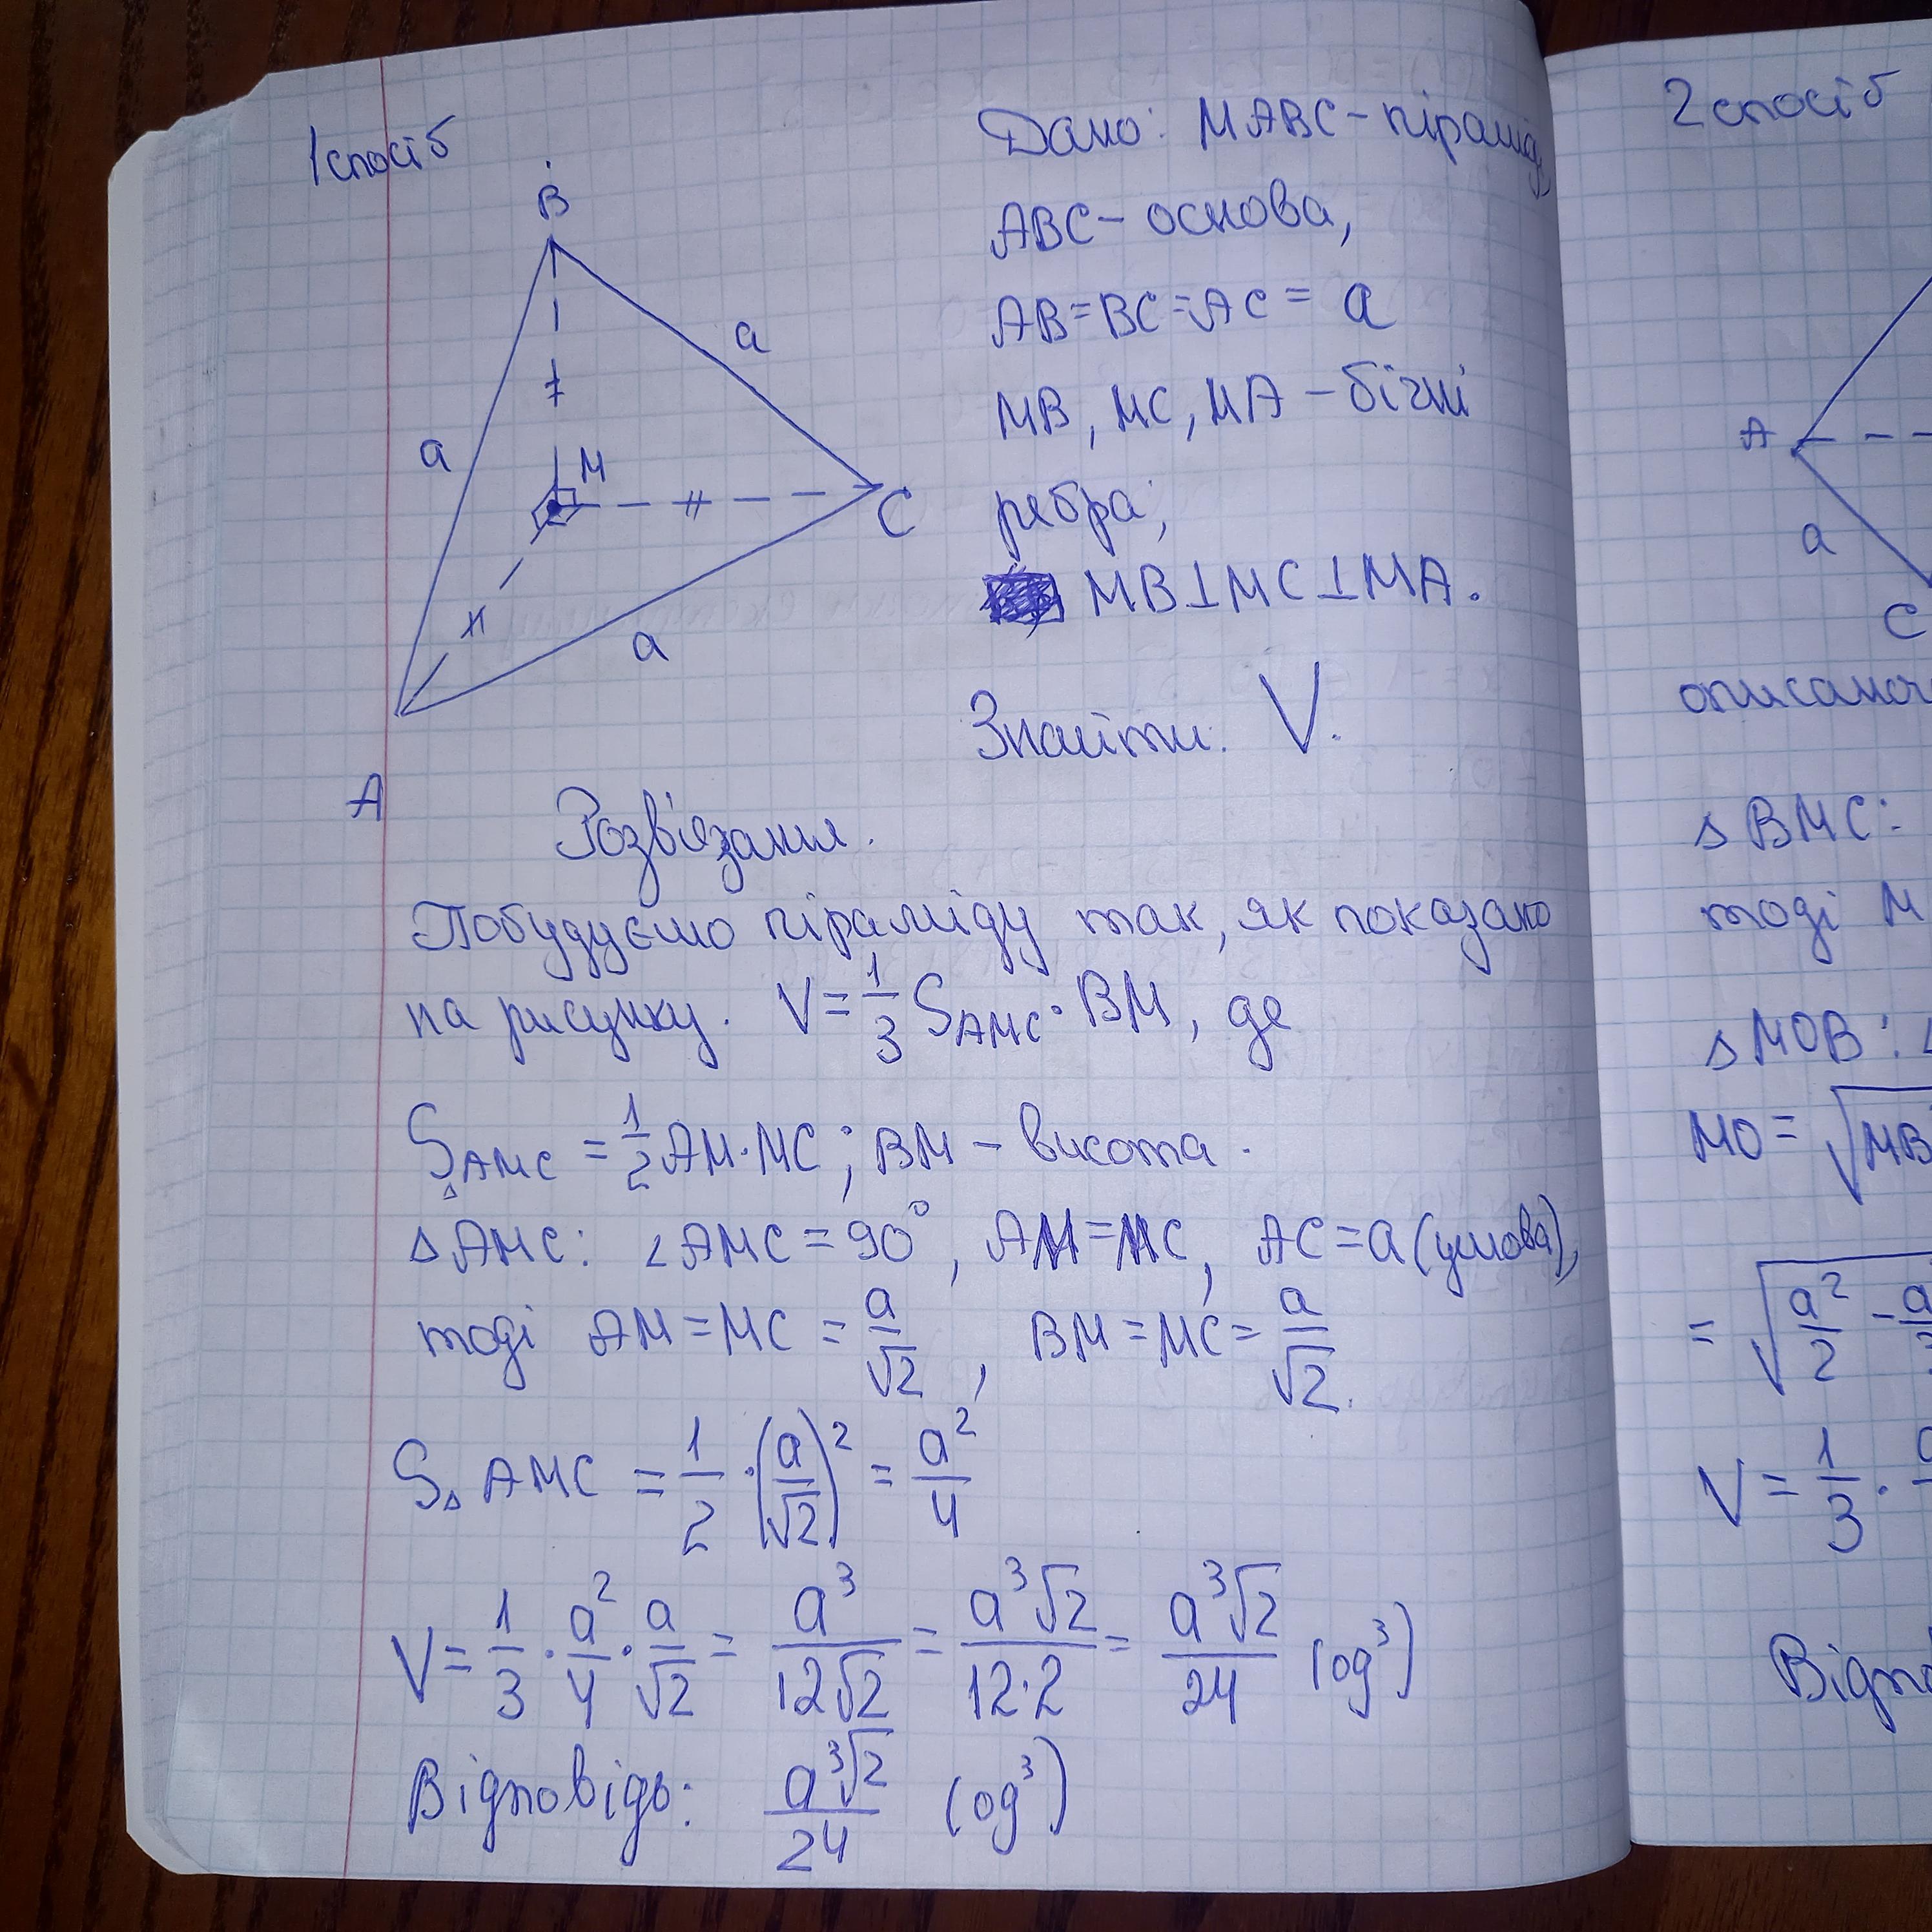 1 спосіб
B
a
a
M
C
a
A
Дано: MABC – пірамід
ABC – основа,
AB = BC = AC = a
MB, MC, MA – бічні
ребра;
MB⊥MC⊥MA.
Знайти: V.
Розв'язання.
Побудуємо піраміду так, як показано
на рисунку. V = 1/3 S_AMC · BM, де
S_△AMC = 1/2 AM·MC; BM – висота.
△AMC: ∠AMC = 90°, AM = MC, AC = a (умова),
тоді AM = MC = a/√2, BM = MC = a/√2.
S△AMC = 1/2 · (a/√2)² = a²/4
V = 1/3 · a²/4 · a/√2 = a³/(12√2) = a³√2/(12·2) = a³√2/24 (од³)
Відповідь: a³√2/24 (од³)
2 спосіб
A
a
C
описаног
△BMC:
тоді M
△MOB: ∠
MO = √MB
= √a²/2 − a
V = 1/3 ·
Відпо